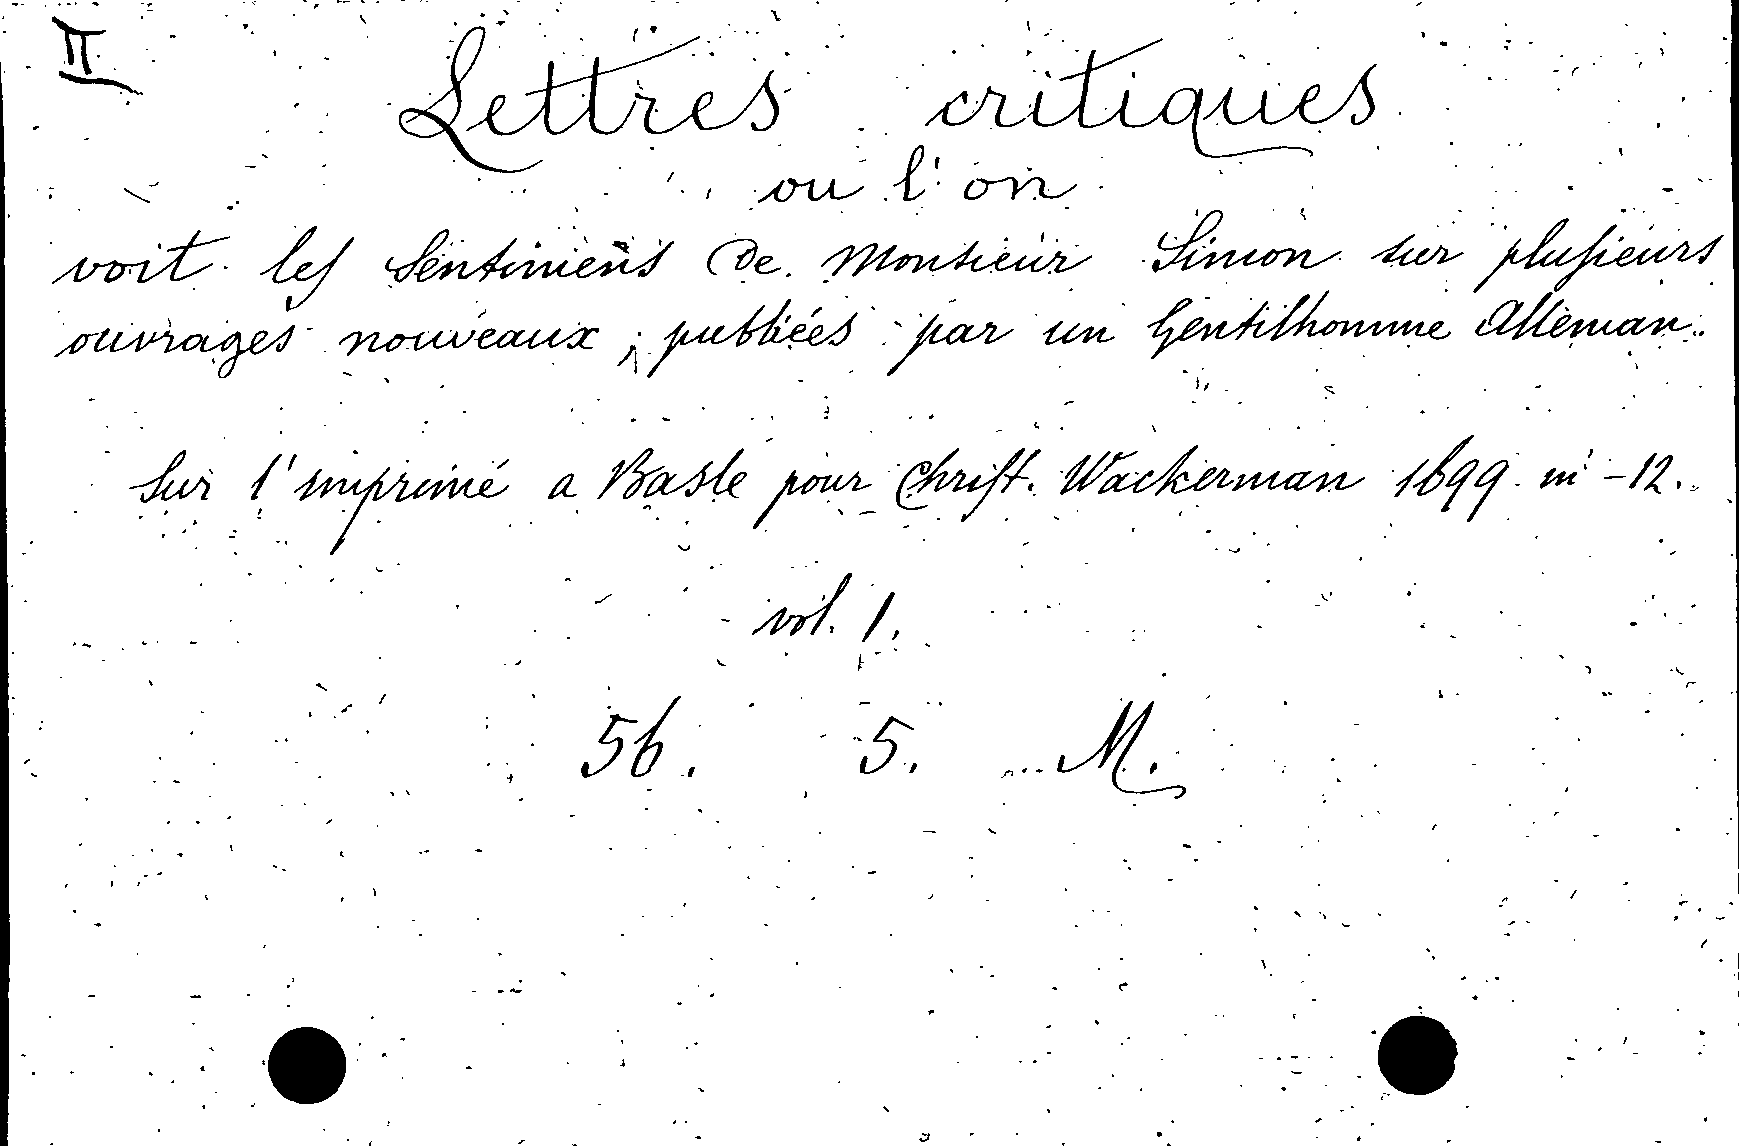 II
Lettres critiques
ou l'on
voit les Sentimens de Monsieur Simon sur plusieurs
ouvrages nouveaux, publiées par un Gentilhomme Alleman.
Sur l'imprimé a Basle pour Christ. Wackerman 1699. in -12.
vol. 1.
56. 5. M.